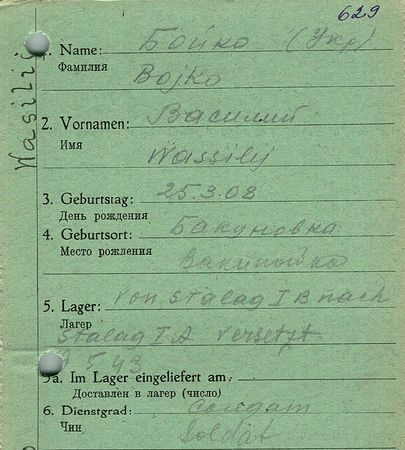 629
Wasilij
1. Name: Бойко (Укр)
Фамилия
Bojko
2. Vornamen: Василий
Имя
Wassilij
3. Geburtstag: 25.3.08
День рождения
4. Geburtsort: Бакуновка
Место рождения
5. Lager: von Stalag I B nach
Лагер
Stalag I A versetzt
5.43
5a. Im Lager eingeliefert am:
Доставлен в лагер (число)
6. Dienstgrad: Солдат
Чин
Soldat